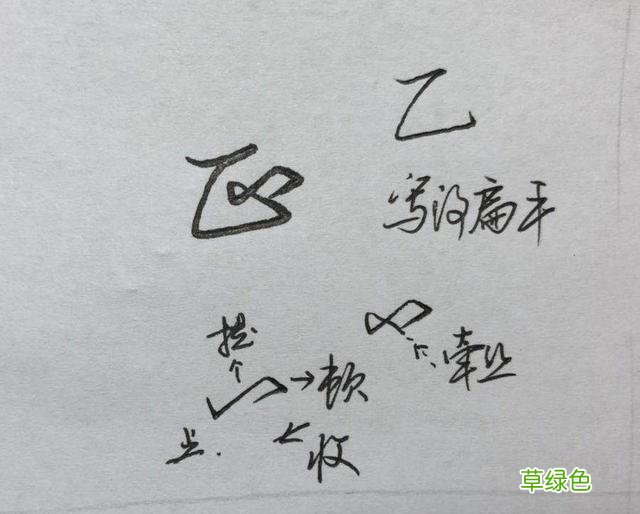 乙
写得扁平
提
牵丝
→顿
收
草绿色